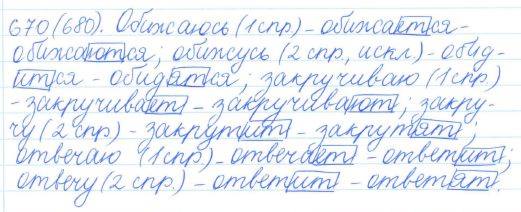 670 (680). Обижаюсь (1 спр) - обижается -
обижаются; обижусь (2 спр, искл) - обид-
ится - обидятся; закручиваю (1 спр)
- закручивает - закручивают; закру-
чу (2 спр) - закрутит - закрутят;
отвечаю (1 спр) - отвечает - ответит;
отвечу (2 спр.) - ответит - ответят.